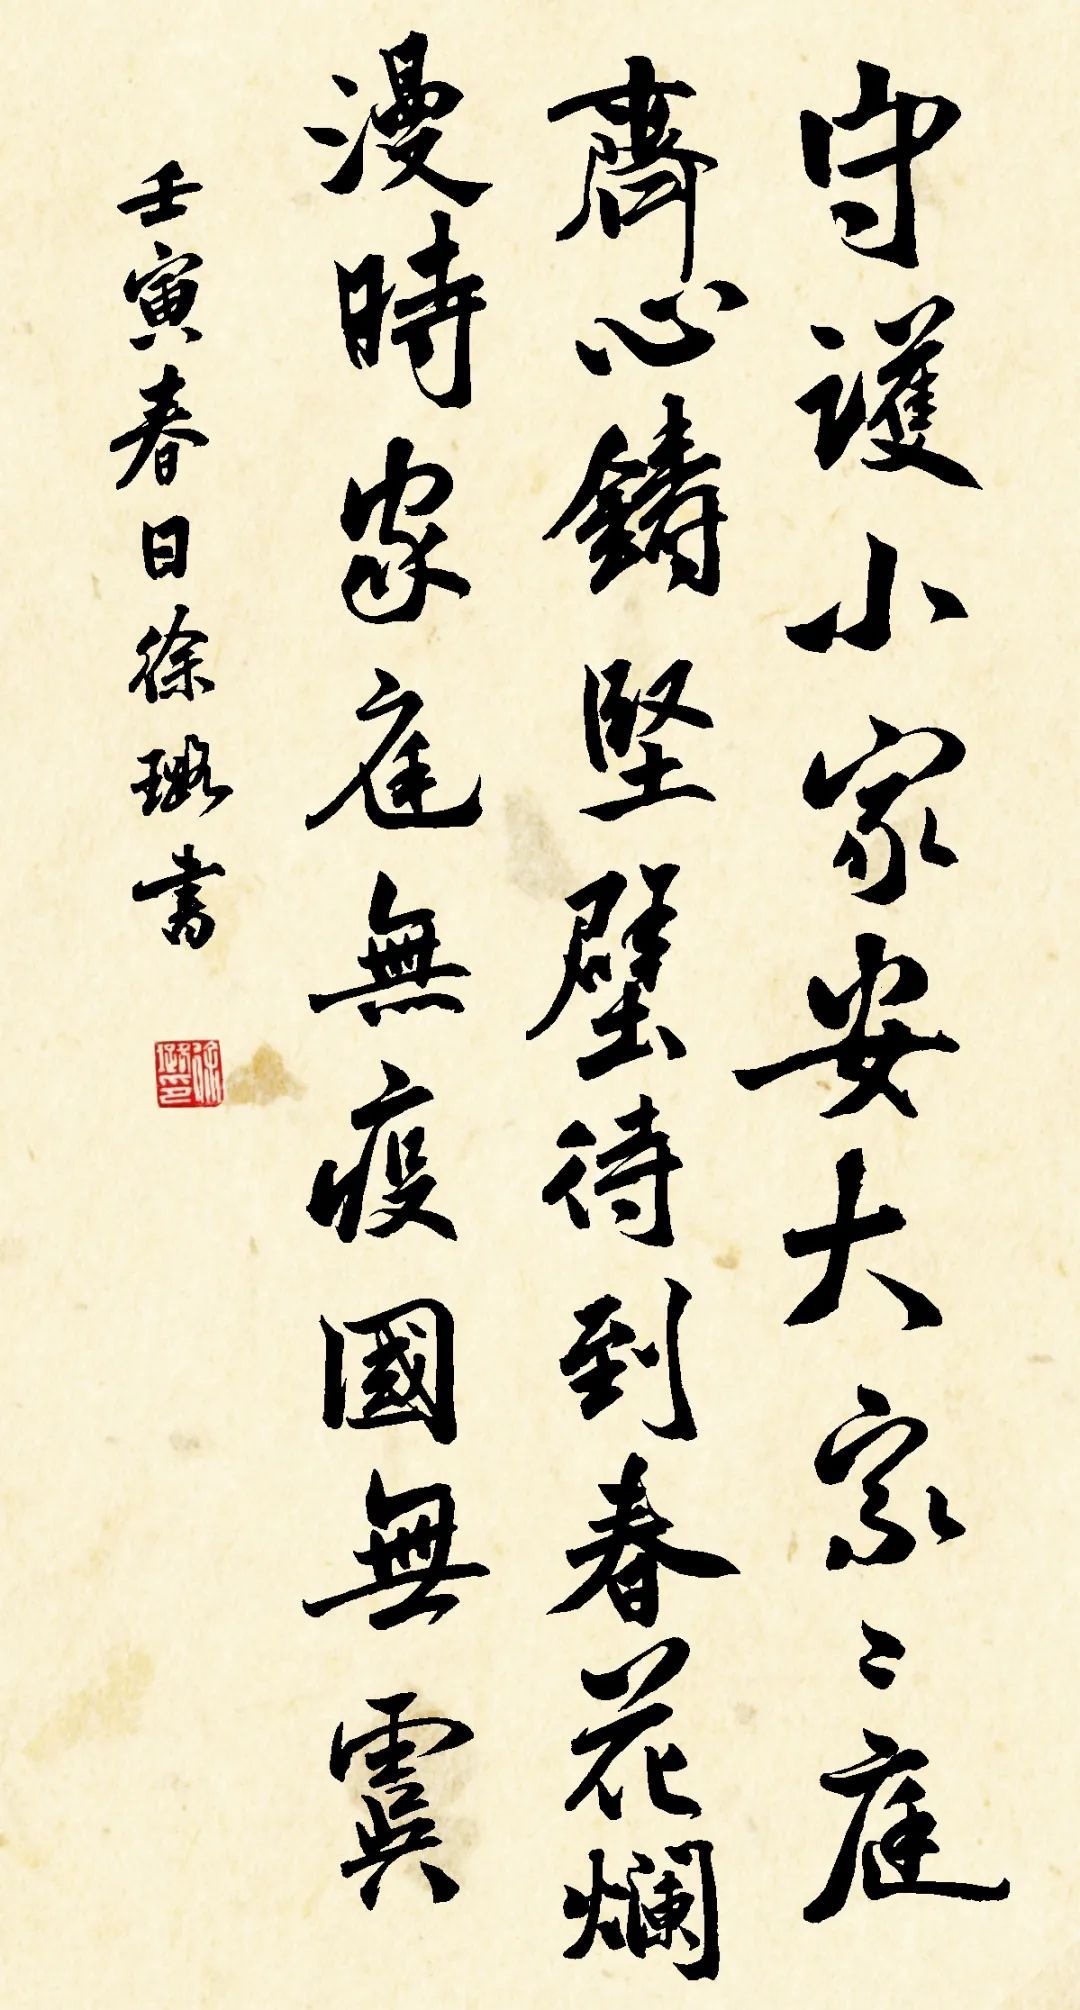 守護小家安大家〻庭
齊心鑄堅壁待到春花爛
漫時家庭無疫國無虞
壬寅春日徐璐書